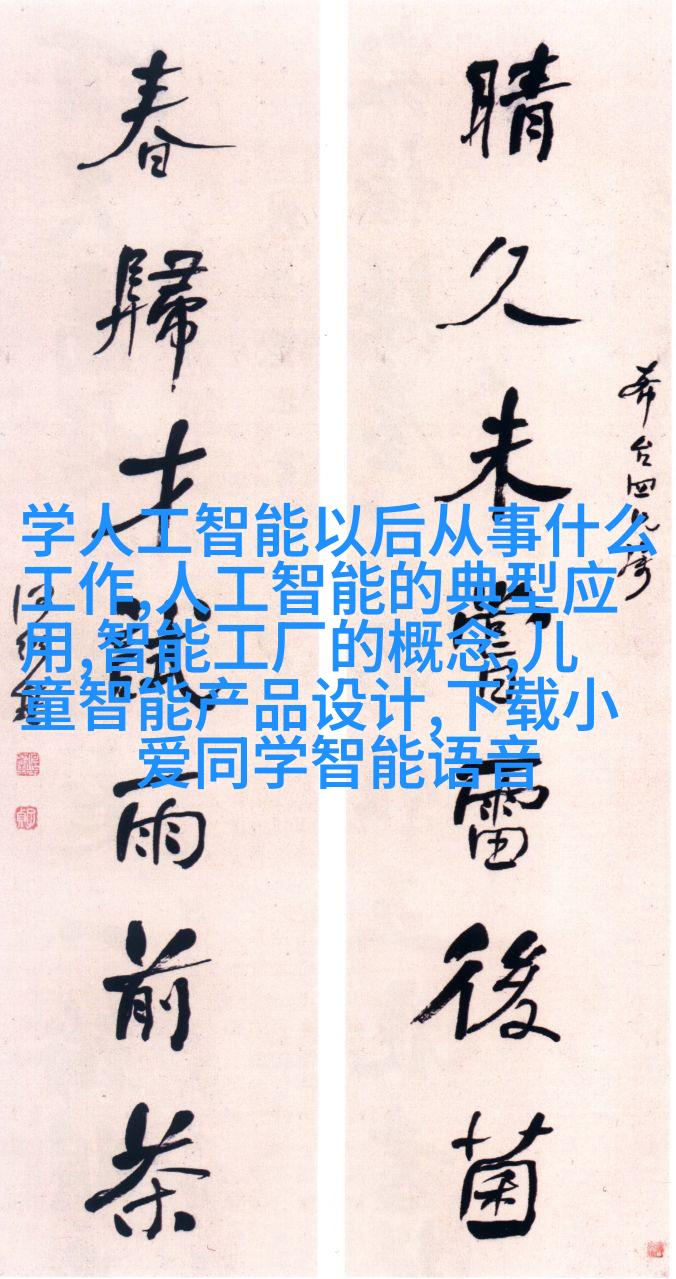 晴久未嘗雷後菌
春歸才試雨前茶
학人工智能以后从事什么
工作,人工智能的典型应
用,智能工厂的概念,儿
童智能产品设计,下载小
爱同学智能语音